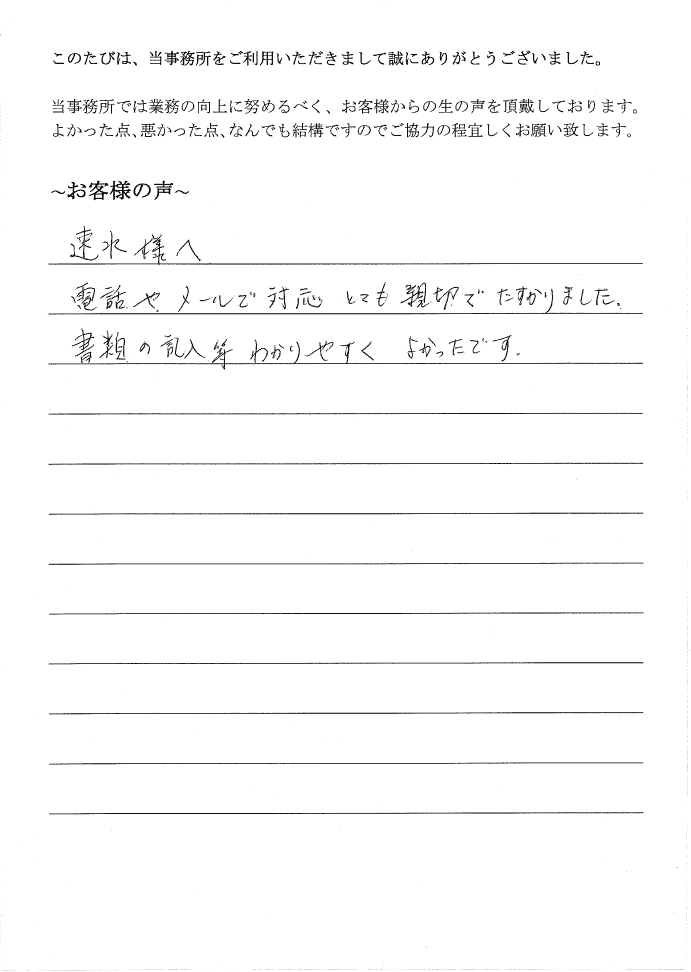 このたびは、当事務所をご利用いただきまして誠にありがとうございました。
当事務所では業務の向上に努めるべく、お客様からの生の声を頂戴しております。
よかった点、悪かった点、なんでも結構ですのでご協力の程宜しくお願い致します。
~お客様の声~
速水様へ
電話や メールで 対応 とても 親切で たすかりました。
書類の記入等 わかりやすく よかったです。